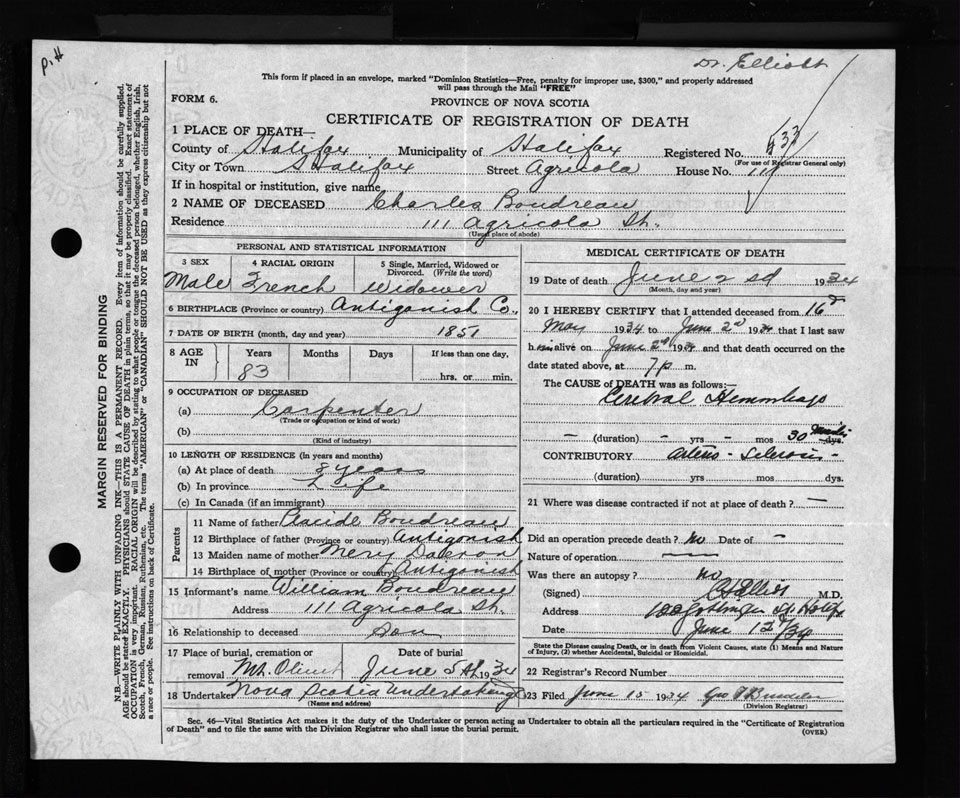 P.H
Dr. Elliott
This form if placed in an envelope, marked "Dominion Statistics—Free, penalty for improper use, $300," and properly addressed
will pass through the Mail "FREE"
FORM 6.
PROVINCE OF NOVA SCOTIA
CERTIFICATE OF REGISTRATION OF DEATH
1 PLACE OF DEATH—
County of Halifax Municipality of Halifax Registered No.
(For use of Registrar General only)
City or Town Halifax Street Agricola House No. 111
If in hospital or institution, give name
2 NAME OF DECEASED Charles Boudreau
Residence 111 Agricola St.
(Usual place of abode)
PERSONAL AND STATISTICAL INFORMATION
3 SEX 4 RACIAL ORIGIN 5 Single, Married, Widowed or
Divorced. (Write the word)
Male French Widower
6 BIRTHPLACE (Province or country) Antigonish Co.,
7 DATE OF BIRTH (month, day and year) 1851
8 AGE IN Years Months Days If less than one day,
83 hrs. or min.
9 OCCUPATION OF DECEASED
(a) Carpenter
(Trade or occupation or kind of work)
(b)
(Kind of industry)
10 LENGTH OF RESIDENCE (in years and months)
(a) At place of death 8 years
(b) In province Life
(c) In Canada (if an immigrant)
Parents
11 Name of father Placide Boudreau
12 Birthplace of father (Province or country) Antigonish
13 Maiden name of mother Mery
14 Birthplace of mother (Province or country) Antigonish
15 Informant's name William Boudreau
Address 111 Agricola St.
16 Relationship to deceased Son
17 Place of burial, cremation or removal Mt. Olivet
Date of burial June 5th 1934
18 Undertaker Nova Scotia Undertaking
(Name and address)
MEDICAL CERTIFICATE OF DEATH
19 Date of death June 2sd 1934
(Month, day and year)
20 I HEREBY CERTIFY that I attended deceased from 16
May 1934 to June 2nd 1934 that I last saw
h im alive on June 2nd 1934 and that death occurred on the
date stated above, at 7 p m.
The CAUSE of DEATH was as follows:—
Cerebral Hemmhage
– (duration) – yrs – mos 30 dys.
CONTRIBUTORY Arterio-Sclerosis –
(duration) yrs. mos. dys.
21 Where was disease contracted if not at place of death? —
Did an operation precede death? no Date of –
Nature of operation —
Was there an autopsy? no
(Signed) M.D.
Address
Date June 12/34
State the Disease causing Death, or in death from Violent Causes, state (1) Means and Nature
of Injury, and (2) whether Accidental, Suicidal or Homicidal.
22 Registrar's Record Number
23 Filed June 15 1934
(Division Registrar)
Sec. 46—Vital Statistics Act makes it the duty of the Undertaker or person acting as Undertaker to obtain all the particulars required in the "Certificate of Registration
of Death" and to file the same with the Division Registrar who shall issue the burial permit.
(OVER)
MARGIN RESERVED FOR BINDING
N.B.—WRITE PLAINLY WITH UNFADING INK—THIS IS A PERMANENT RECORD. Every item of information should be carefully supplied.
AGE should be stated EXACTLY. PHYSICIANS should STATE CAUSE OF DEATH in plain terms, so that it may be properly classified. Exact statement of
OCCUPATION is very important. RACIAL ORIGIN will be described by stating to what people or tongue the deceased person belonged, whether English, Irish,
Scotch, French, German, Russian, Ruthenian, etc. The terms "AMERICAN" or "CANADIAN" SHOULD NOT BE USED as they express citizenship but not
a race or people. See instructions on back of Certificate.